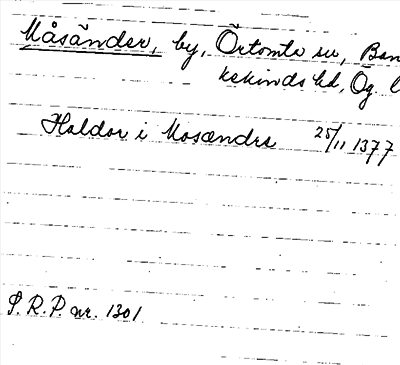 Måsänder, by, Örtomta sn, Ban
kekinds hd, Ög. l
Haldor i Mosændrs 25/11 1377
S.R.P. nr. 1301